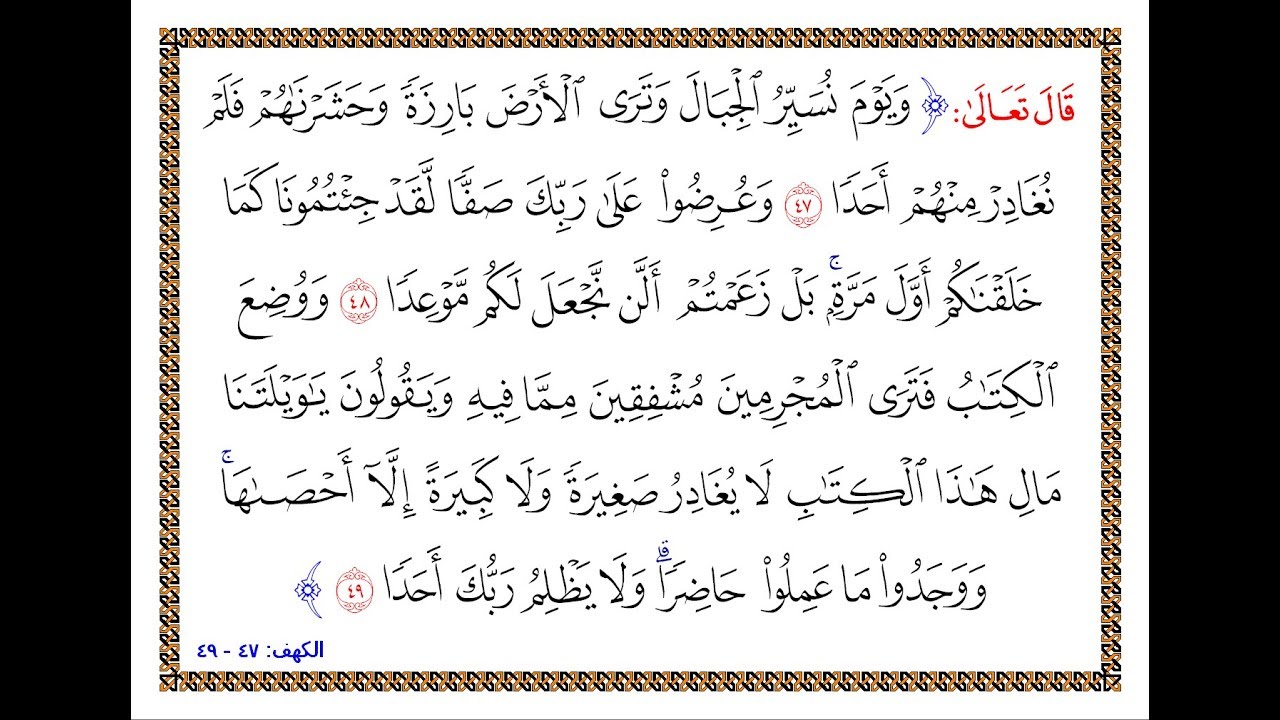 قَالَ تَعَالَىٰ: ﴿ وَيَوْمَ نُسَيِّرُ ٱلْجِبَالَ وَتَرَى ٱلْأَرْضَ بَارِزَةً وَحَشَرْنَٰهُمْ فَلَمْ
نُغَادِرْ مِنْهُمْ أَحَدًا ٤٧ وَعُرِضُوا۟ عَلَىٰ رَبِّكَ صَفًّا لَّقَدْ جِئْتُمُونَا كَمَا
خَلَقْنَٰكُمْ أَوَّلَ مَرَّةٍۭ ۚ بَلْ زَعَمْتُمْ أَلَّن نَّجْعَلَ لَكُم مَّوْعِدًا ٤٨ وَوُضِعَ
ٱلْكِتَٰبُ فَتَرَى ٱلْمُجْرِمِينَ مُشْفِقِينَ مِمَّا فِيهِ وَيَقُولُونَ يَٰوَيْلَتَنَا
مَالِ هَٰذَا ٱلْكِتَٰبِ لَا يُغَادِرُ صَغِيرَةً وَلَا كَبِيرَةً إِلَّآ أَحْصَىٰهَا ۚ
وَوَجَدُوا۟ مَا عَمِلُوا۟ حَاضِرًا ۗ وَلَا يَظْلِمُ رَبُّكَ أَحَدًا ٤٩ ﴾
الكهف: ٤٧ - ٤٩